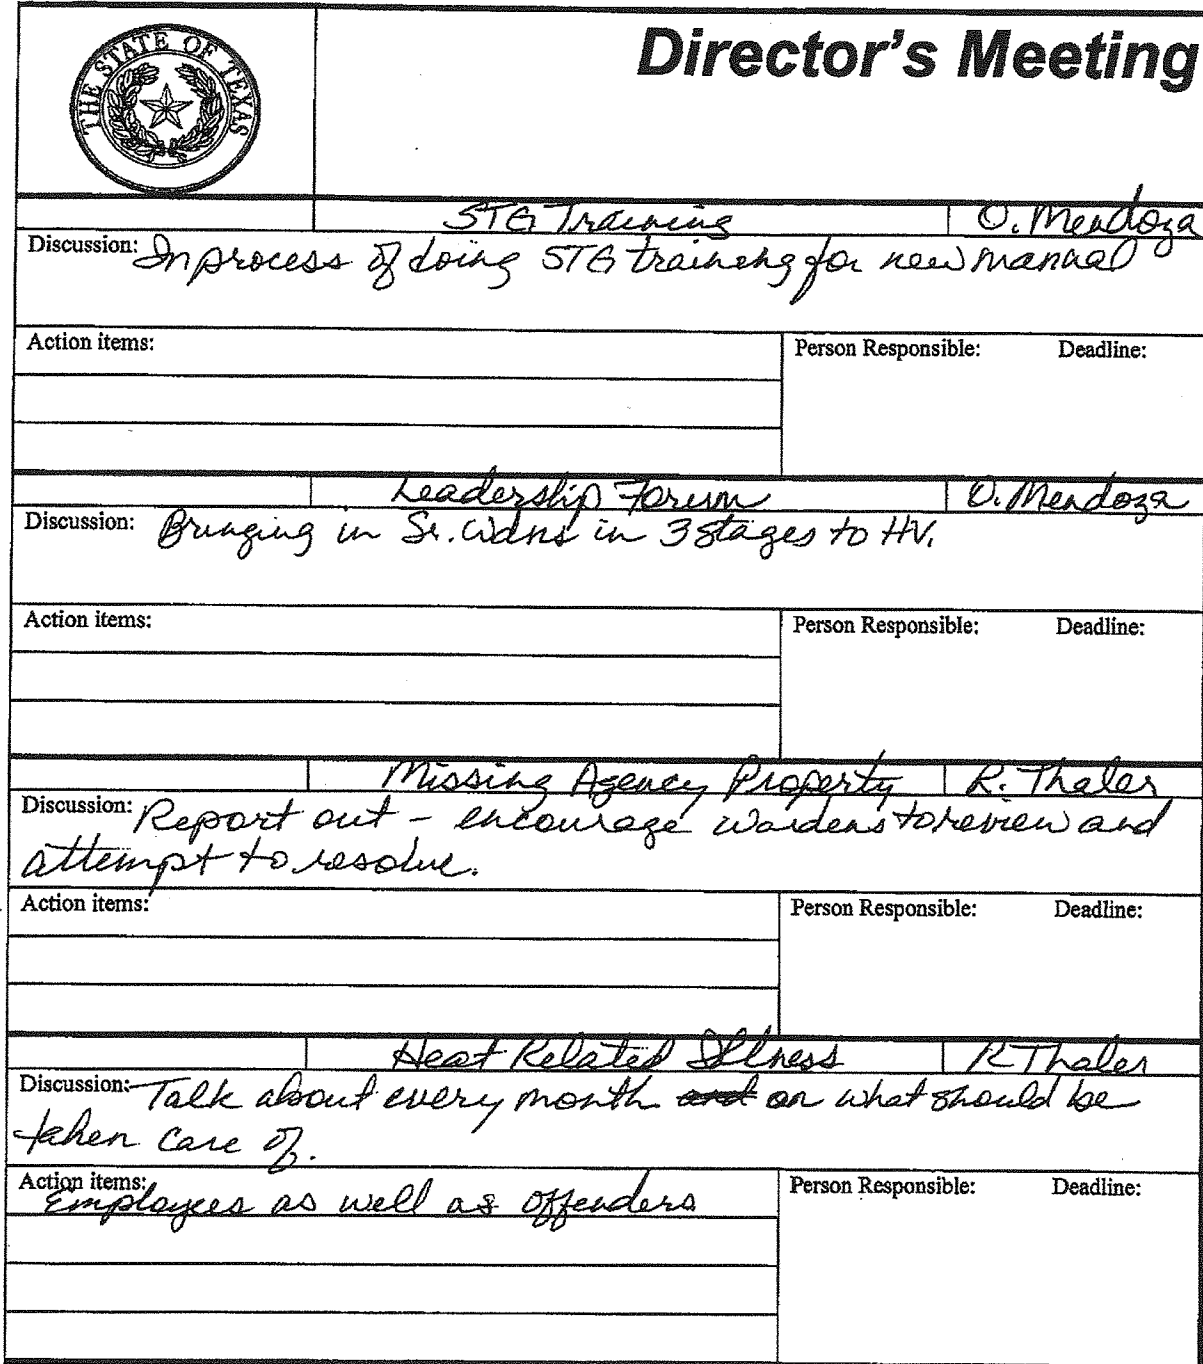 THE STATE OF TEXAS
Director's Meeting
STG Training O. Mendoza
Discussion: In process of doing STG training for new manual
Action items: Person Responsible: Deadline:
Leadership Forum O. Mendoza
Discussion: Bringing in Sr. Wdns in 3 stages to HV.
Action items: Person Responsible: Deadline:
Missing Agency Property R. Thaler
Discussion: Report out - encourage wardens to review and
attempt to resolve.
Action items: Person Responsible: Deadline:
Heat Related Illness R Thaler
Discussion: Talk about every month and on what should be
taken care of.
Action items: Person Responsible: Deadline:
Employees as well as offenders